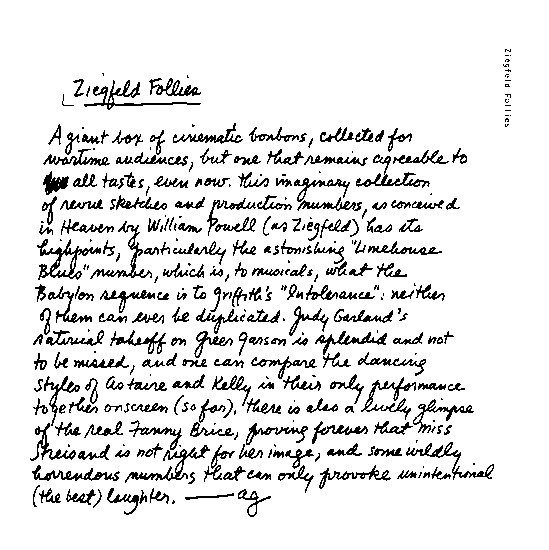 Ziegfeld Follies
Ziegfeld Follies
A giant box of cinematic bonbons, collected for
wartime audiences, but one that remains agreeable to
all tastes, even now. This imaginary collection
of revue sketches and production numbers, as conceived
in Heaven by William Powell (as Ziegfeld) has its
highpoints, particularly the astonishing "Limehouse
Blues" number, which is, to musicals, what the
Babylon sequence is to Griffith's "Intolerance": neither
of them can ever be duplicated. Judy Garland's
satirical takeoff on Greer Garson is splendid and not
to be missed, and one can compare the dancing
styles of Astaire and Kelly in their only performance
together onscreen (so far). There is also a lively glimpse
of the real Fanny Brice, proving forever that Miss
Streisand is not right for her image, and some wildly
horrendous numbers that can only provoke unintentional
(the best) laughter. — ag